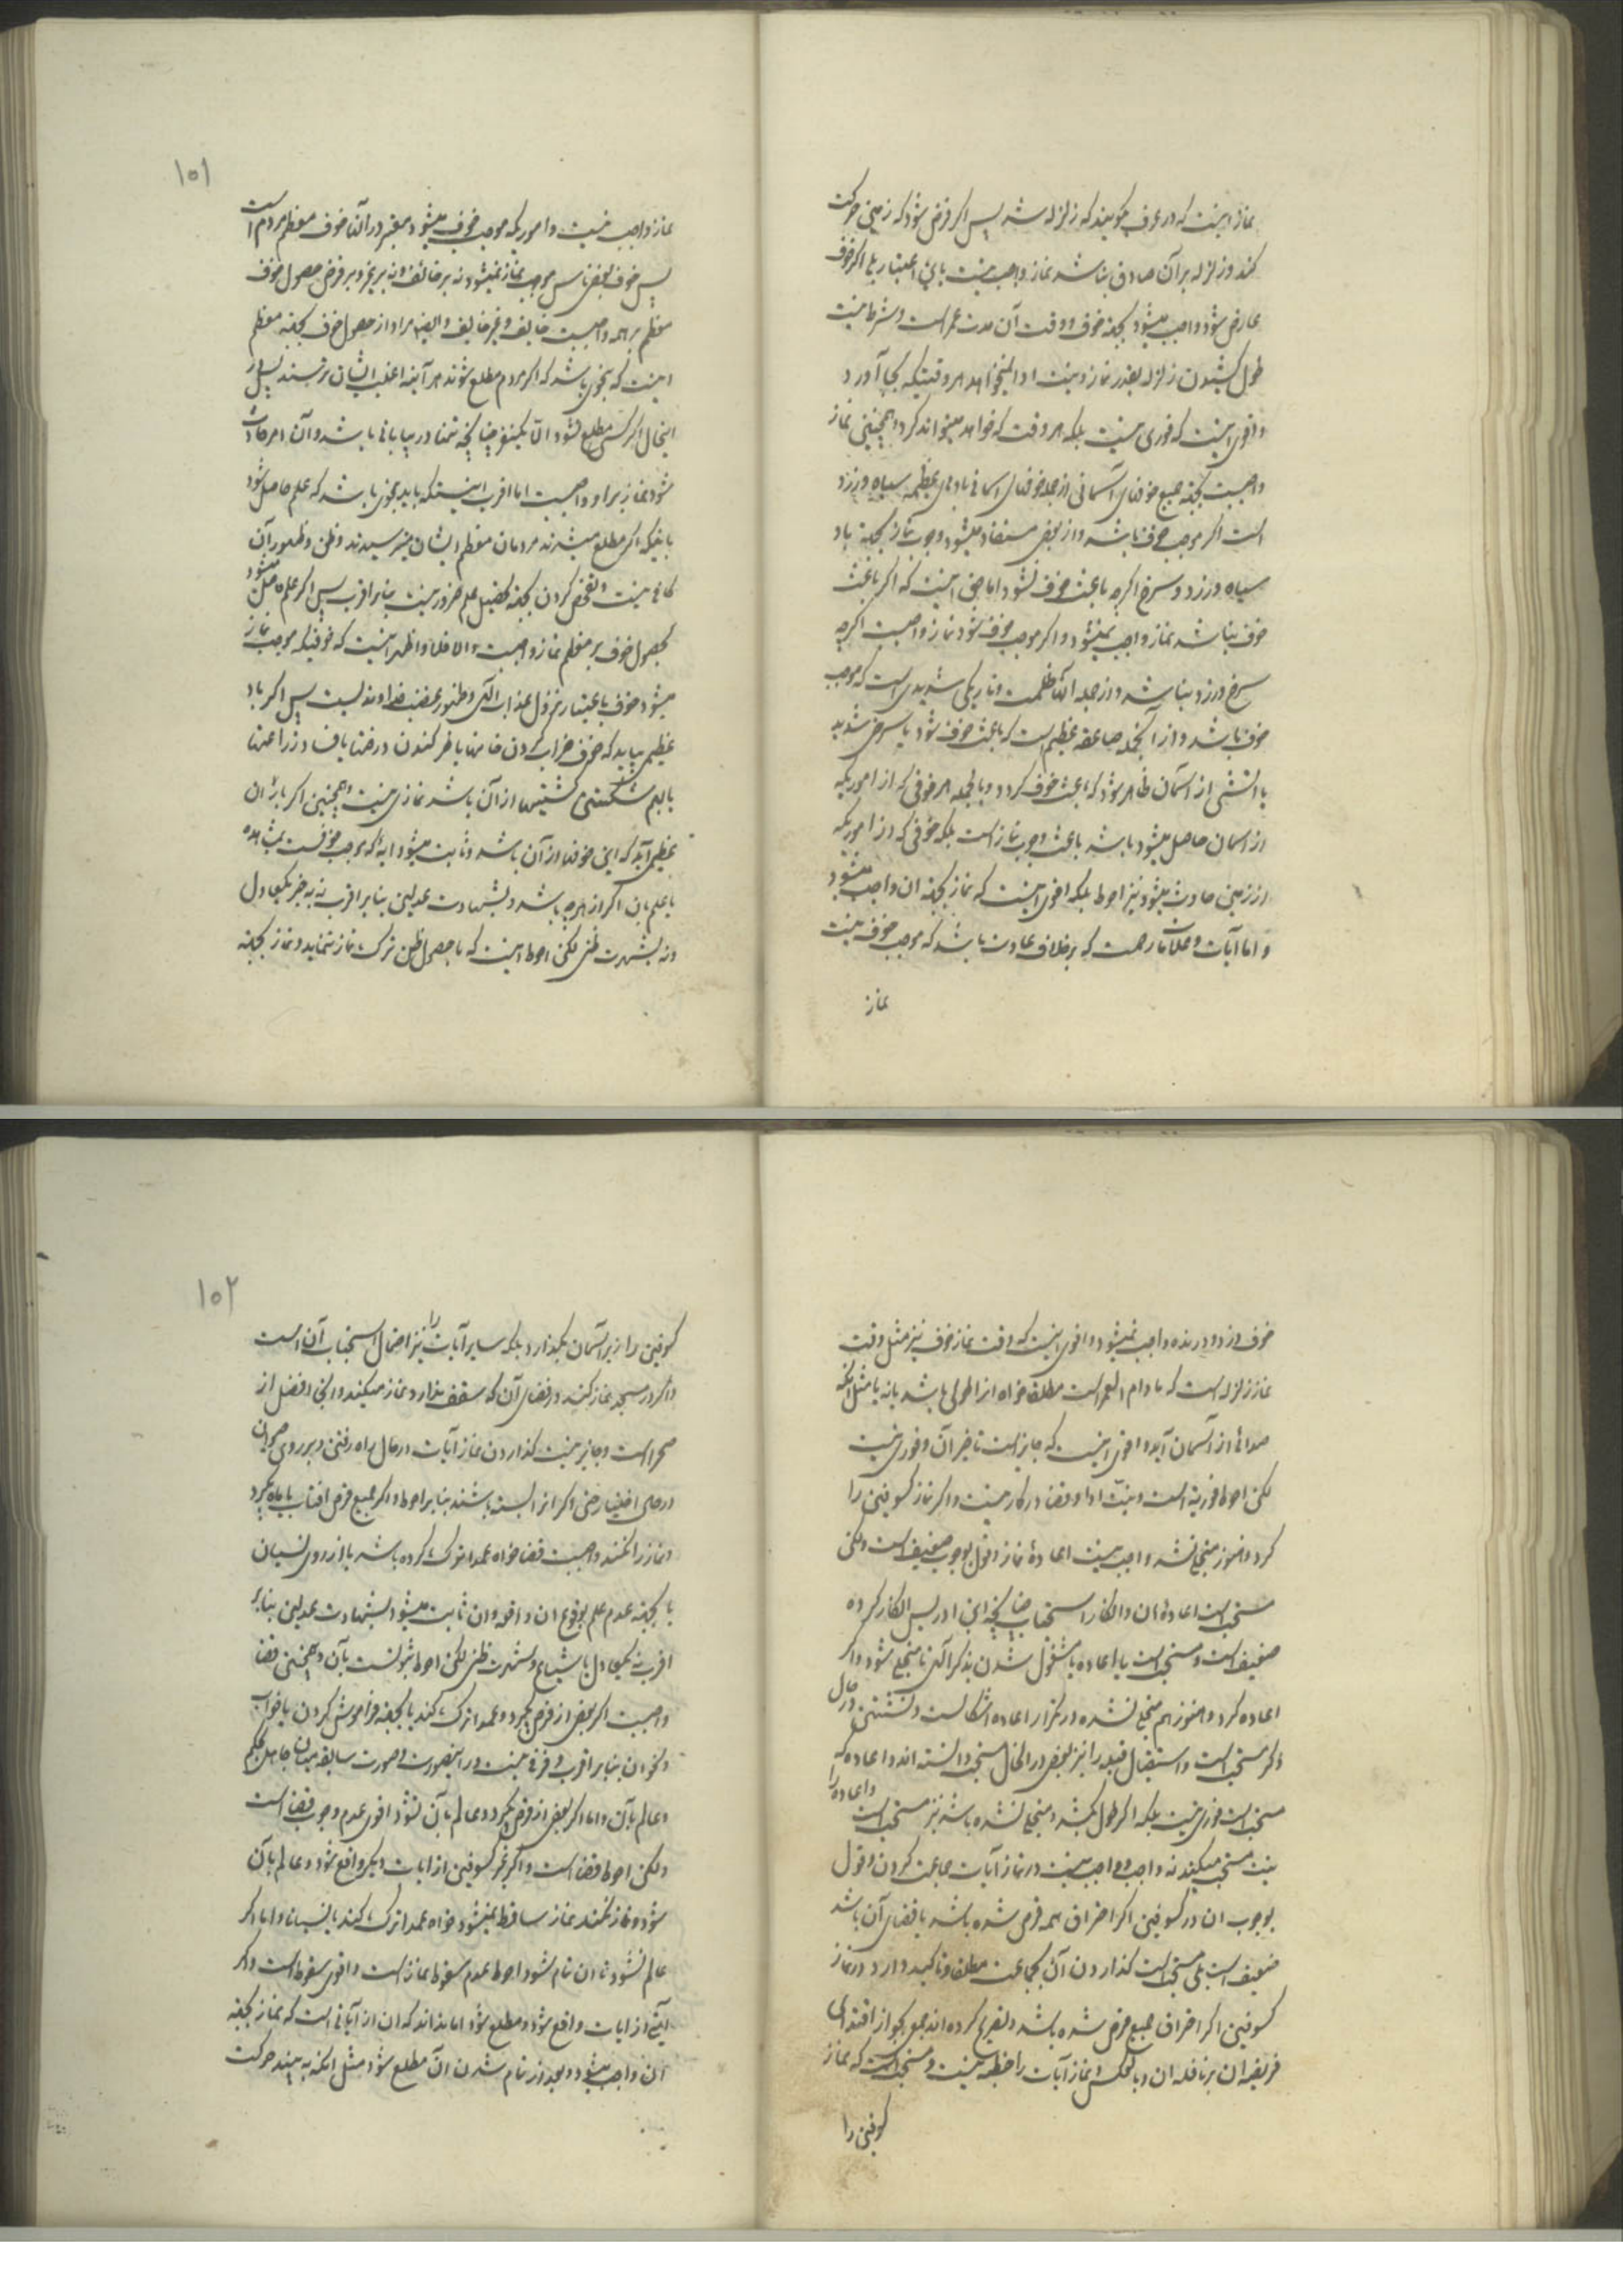 نماز اینست که در عرف گویند که زلزله شد پس اگر فرض شود که زمین حرکت
کند و زلزله بر آن صادق نباشد نماز واجب نیست باین اعتبار بلی اگر خوف
عارض شود واجب میشود بجهة خوف و وقت آن مدت عمر است و شرط نیست
طول کشیدن زلزله بقدر نماز و نیت ادا میخواهد هر وقتیکه بجا آورد
و اقوی اینست که فوری نیست بلکه هر وقت که خواهد میتواند کرد و همچنین نماز
واجبست بجهة جمیع خوفهای آسمانی از جمله خوفهای آسمانی بادهای عظیمه سیاه و زرد
است اگر موجب خوف باشد و از بعض مستفاد میشود وجوب نماز بجهة باد
سیاه و زرد و سرخ اگرچه باعث خوف نشود اما حق اینست که اگر باعث
خوف نباشد نماز واجب نمیشود و اگر موجب خوف شود نماز واجبست اگرچه
سرخ و زرد نباشد و از جمله آنها ظلمت و تاریکی شدیدی است که موجب
خوف باشد و از آنجمله صاعقه عظیم است که باعث خوف شود یا سرخی شدید
یا آتشی از آسمان ظاهر شود که باعث خوف گردد و بالجمله هر خوفی که از اموریکه
از آسمان حاصل میشود باشد باعث وجوب نماز است بلکه خوفی که از اموریکه
از زمین حادث میشود نیز احوط بلکه اقوی اینست که نماز بجهة ان واجب میشود
و اما آیات و علامات که بر خلاف عادت باشد که موجب خوف نیست
نماز
۱۵۱
نماز واجب نیست و اموریکه موجب خوف میشود معتبر در آنها خوف معظم مردم است
پس خوف بعض ناس موجب نماز نمیشود نه بر خائف و نه بر غیر و بر فرض حصول خوف
معظم بر همه واجبست خایف و غیر خایف و ایضا مراد از حصول خوف بجهة معظم
اینست که بنحوی باشد که اگر مردم مطلع شوند هر آینه اغلب ایشان بترسند پس در
اینحال اگر کسی مطلع نشود الا یکنفر چنانچه تنها در بیابانی باشد و آن امر حادث
شود نماز بر او واجبست اما اقرب اینستکه باید بنحوی باشد که علم حاصل شود
باینکه اگر مطلع میشدند مردمان معظم ایشان میترسیدند و ظن و ظهور آن
کافی نیست و تفحص کردن بجهة تحصیل علم ضرور نیست بنا بر اقرب پس اگر علم حاصل میشود
بحصول خوف بر معظم نماز واجبست و الا فلا و اظهر اینست که خوفیکه موجب نماز
میشود خوف باعتبار نزول عذاب الهی و ظهور غضب خداوندیست پس اگر باد
عظیمی بیاید که خوف خراب کردن خانها یا خرکندن درختها یا فساد زراعتها
یا بیم شکستن کشتیها از آن باشد نمازی نیست و همچنین اگر باران
عظیمی آید که این خوفها از آن باشد و ثابت میشود آیة که موجب خوفست بمشاهده
یا علم بان اگر از هرچه باشد و بشهادت عدلین بنا بر اقرب نه بخبر یکعادل
و نه بشهرت ظنی لکن احوط اینست که با حصول ظن ترک نماز ننماید و نماز بجهة
خوف دزد و درنده واجب نمیشود و اقوی اینست که وقت نماز خوف نیز مثل وقت
نماز زلزله است که مادام العمر است مطلقا خواه از اطولی باشد یا نه یا مثل آنکه
صدائی از آسمان آید و اقوی اینست که جایز است تاخیر آن و فوری نیست
لکن احوط فوریة است و نیت ادا و قضا در کار نیست و اگر نماز کسوفین را
کرد و هنوز منجلی نشد واجب نیست اعادهٔ نماز و قول بوجوب ضعیف است ولکن
مستحب است اعادهٔ ان و انکار استحباب چنانچه ابن ادریس انکار کرده
ضعیف است و مستحب است یا اعاده یا مشغول شدن بذکر الهی تا منجلی شود و اگر
اعاده کرد و هنوز هم منجلی نشده در تکرار اعاده اشکالست و نشستن در حال
ذکر مستحب است و استقبال قبله را نیز بعض در انحال مستحب دانسته اند و اعاده که
مستحب است فوری نیست بلکه اگر طول بکشد و منجلی نشده باشد نیز مستحب است و اعاده را
بنیت مستحب میکند نه واجب و واجب نیست در نماز آیات جماعت کردن و قول
بوجوب ان در کسوفین اگر احتراق همه قرص شده باشد یا قضای آن باشد
ضعیف است بلی مستحب است گذاردن آن بجماعت مطلقا و تاکید دارد در نماز
کسوفین اگر احتراق جمیع قرص شده باشد و تصریح کرده اند جمع بجواز اقتدای
فریضه ان بر نافله ان و بالعکس و نماز آیات را خطبه نیست و مستحب است که نماز
کسوفین را
۱۵۲
کسوفین را زیر آسمان بگذارد بلکه سایر آیات را نیز احتمال استحباب آن است
و اگر در مسجد نماز کنند در فضای آن که سقف ندارد نماز میکنند و این افضل از
صحرا است و جایز نیست گذاردن نماز آیات در حال راه رفتن و بر روی حیوان
در حال اختیار حتی اگر انرا بسته باشند بنا بر احوط و اگر جمیع قرص افتاب یا ماه بگیرد
و نماز را نکنند واجبست قضا خواه عمدا ترک کرده باشد یا از روی نسیان
یا بجهة عدم علم بوقوع ان واقعه و ان ثابت میشود بشهادت عدلین بنا بر
اقرب نه بیکعادل یا شیاع و شهرت ظنی لکن احوط ثبوتست بآن و همچنین قضا
واجبست اگر بعض از قرص بگیرد و عمدا ترک کند یا بجهة فراموش کردن یا خواب
و نحو ان بنا بر اقرب و فرقی نیست در اینصورت و صورت سابقه میان جاهل بحکم
و عالم بآن و اما اگر بعض از قرص بگیرد و عالم بآن نشود اقوی عدم وجوب قضا است
ولکن احوط قضا است و اگر غیر کسوفین از ایات دیگر واقع شود و عالم بآن
شود و نماز نکند نماز ساقط نمیشود خواه عمدا ترک کند یا نسیانا و اما اگر
عالم نشود تا ان تمام شود احوط عدم سقوط نماز است و اقوی سقوط است و اگر
آیتی از ایات واقع شود و مطلع شود اما نداند که ان از آیاتی است که نماز بجهة
ان واجب میشود و بعد از تمام شدن ان مطلع شود مثل آنکه به بیند حرکت